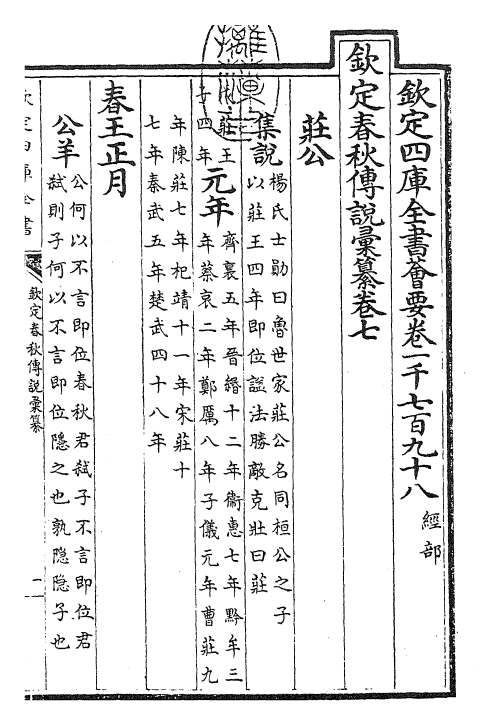 欽定四庫全書薈要卷一千七百九十八 經部
欽定春秋傳說彙纂卷七
莊公
集說 楊氏士勛曰魯世家莊公名同桓公之子
以莊王四年即位諡法勝敵克壯曰莊
莊王
子四年
元年 齊襄五年晉緡十二年衛惠七年黔牟三
年蔡哀二年鄭厲八年子儀元年曹莊九
年陳莊七年杞靖十一年宋莊十
七年秦武五年楚武四十八年
春王正月
公羊 公何以不言即位春秋君弒子不言即位君
弒則子何以不言即位隱之也孰隱隱子也
欽定四庫全書
欽定春秋傳說彙纂
一